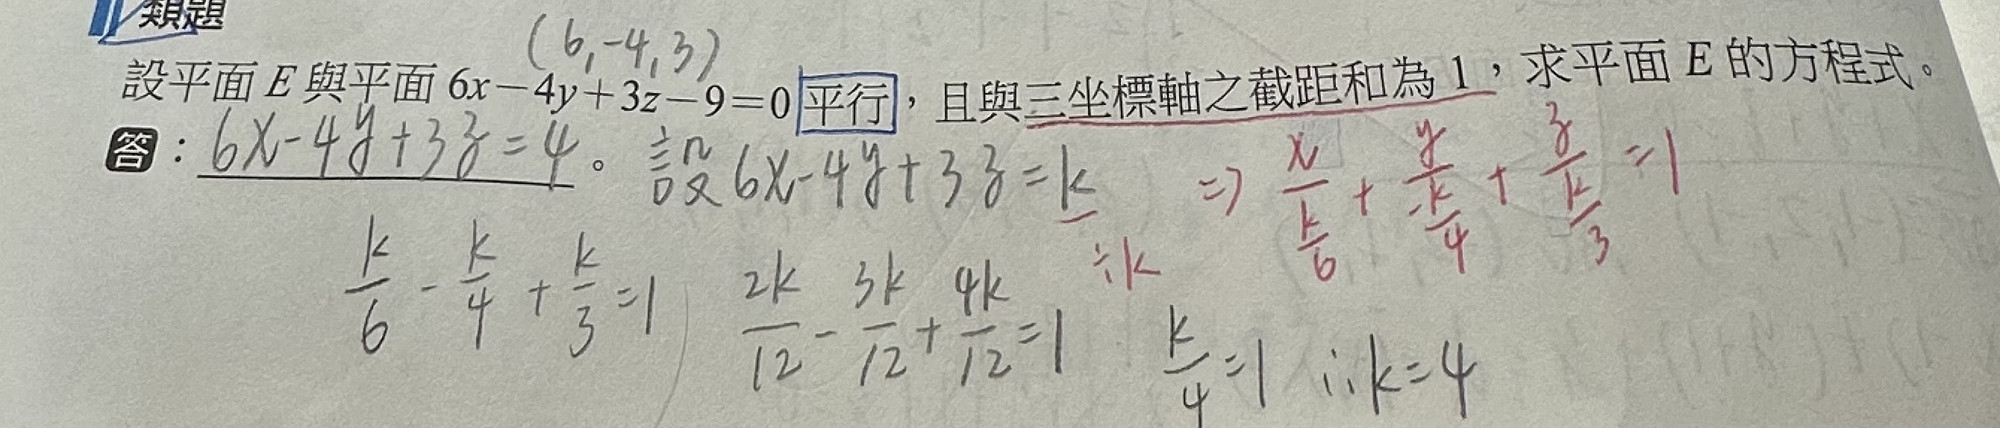 類題
(6,-4,3)
設平面 E 與平面 6x-4y+3z-9=0 平行，且與三坐標軸之截距和為 1，求平面 E 的方程式。
答：6x-4y+3z=4。 設 6x-4y+3z=k ⇒ x/(k/6) + y/(-k/4) + z/(k/3) = 1
÷k
k/6 - k/4 + k/3 = 1 2k/12 - 3k/12 + 4k/12 = 1 k/4 = 1 ∴k=4